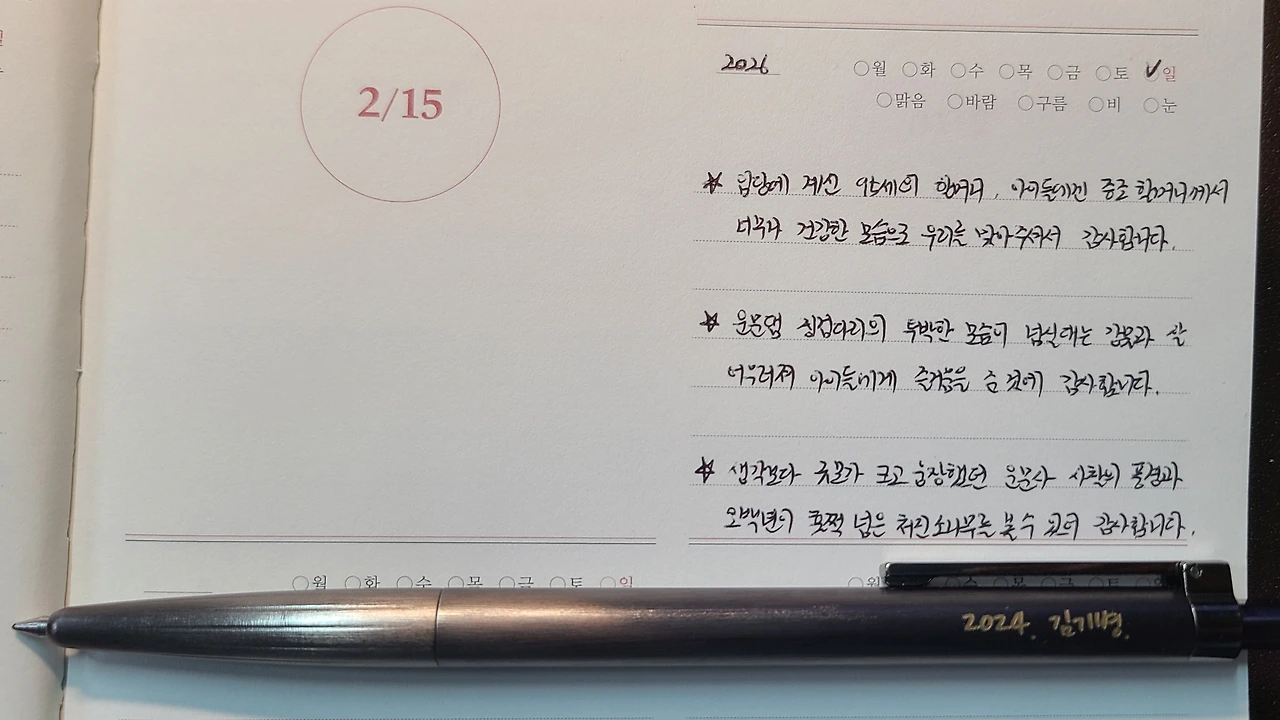 2/15
2026 월 화 수 목 금 토 일
맑음 바람 구름 비 눈
계신 95세의 할머니, 아이들에겐 증조할머니께서
너무나 건강한 모습으로 우리를 맞아주셔서 감사합니다.
운문댐 징검다리의 투박한 모습이 넘실대는 강물과 잘
어우러져 아이들에게 즐거움을 준 것에 감사합니다.
생각보다 규모가 크고 웅장했던 운문사 사찰의 풍경과
오백년이 훌쩍 넘은 처진소나무를 볼 수 있어 감사합니다.
월 화 수 목 금 토 일
월 수 목 금 토
2024. 김기병.